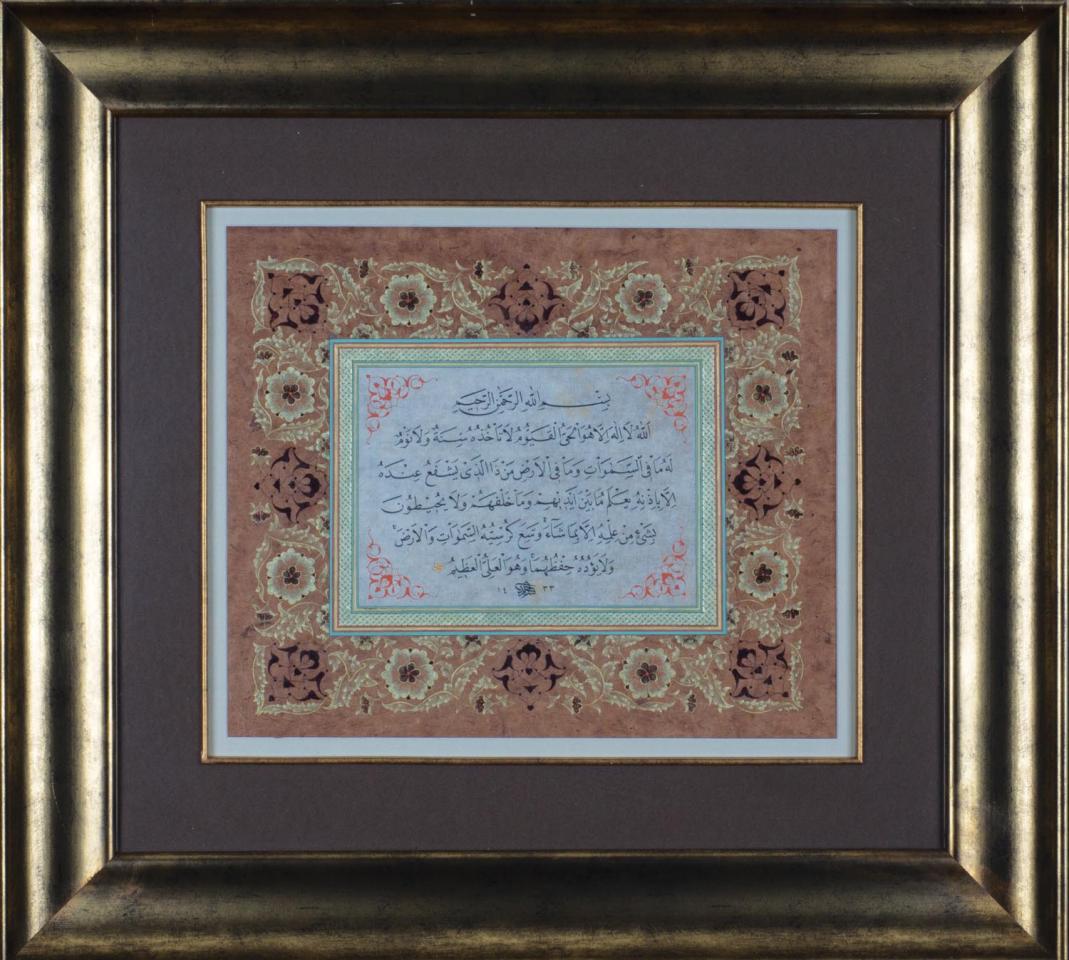 بِسْمِ اللهِ الرَّحْمٰنِ الرَّحِيمِ
اَللهُ لَا اِلٰهَ اِلَّا هُوَ اَلْحَىُّ الْقَيُّومُ لَا تَأْخُذُهُ سِنَةٌ وَلَا نَوْمٌ
لَهُ مَا فِى السَّمٰوَاتِ وَمَا فِى الْاَرْضِ مَنْ ذَا الَّذِى يَشْفَعُ عِنْدَهُ
اِلَّا بِاِذْنِهِ يَعْلَمُ مَا بَيْنَ اَيْدِيهِمْ وَمَا خَلْفَهُمْ وَلَا يُحِيطُونَ
بِشَىْءٍ مِنْ عِلْمِهِ اِلَّا بِمَا شَاءَ وَسِعَ كُرْسِيُّهُ السَّمٰوَاتِ وَالْاَرْضَ
وَلَا يَؤُدُهُ حِفْظُهُمَا وَهُوَ الْعَلِىُّ الْعَظِيمُ
١٤ ٣٣